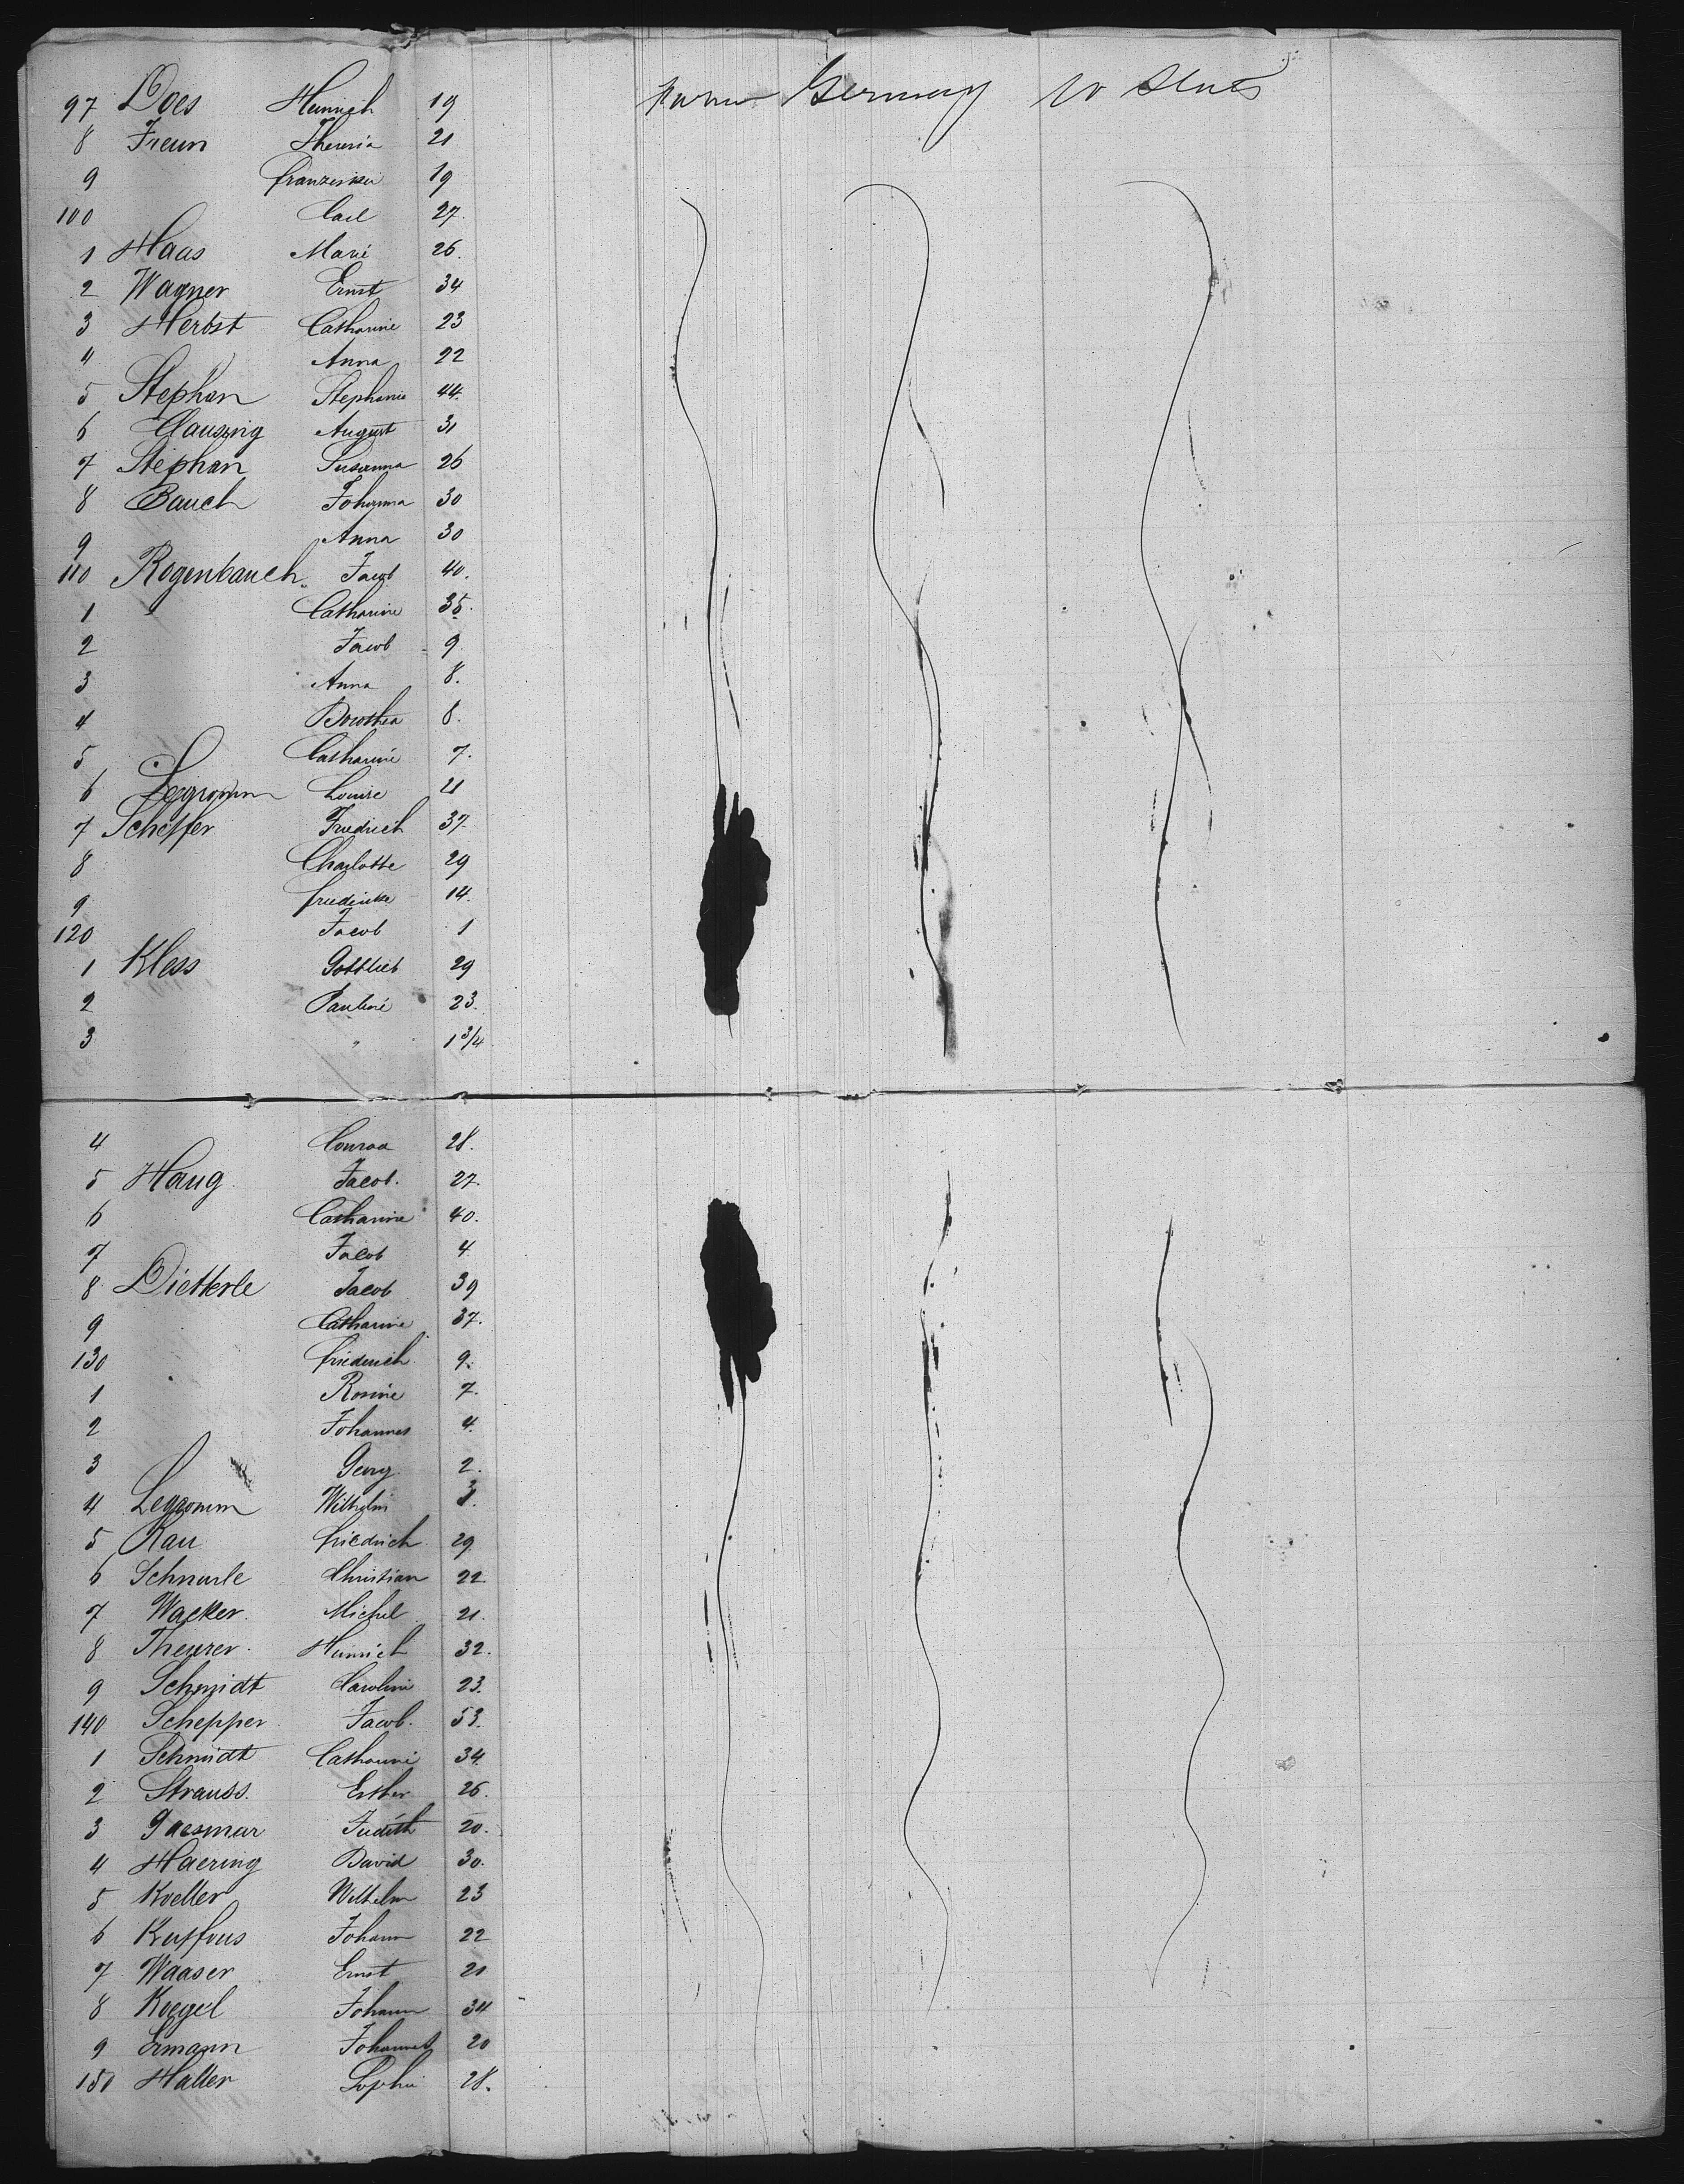 97 Does Heinrich 19 farmer Germany U States
8 Freun Theresia 21
9 Franziska 19
100 Carl 27.
1 Haas Marie 26.
2 Wagner Ernst 34
3 Herbst Catharine 23
4 Anna 22
5 Stephan Stephanie 44.
6 Clausing August 31
7 Stephan Susanna 26
8 Bauch Johanna 30
9 Anna 30
110 Rogenbauch Jacob 40.
1 " Catharine 35.
2 Jacob 9
3 Anna 8.
4 Dorothea 8.
5 Catharine 7.
6 Legromm Louise 21
7 Scheffer Friedrich 37.
8 Charlotte 29
9 Friedericke 14.
120 Jacob 1
1 Kless Gottlieb 29
2 Pauline 23.
3 " 1 3/4
4 Conrad 28.
5 Haug Jacob. 27.
6 Catharine 40.
7 Jacob 4
8 Dietterle Jacob 39
9 Catharine 37.
130 Friedrich 9.
1 Rosine 7.
2 Johannes 4.
3 Georg 2.
4 Legromm Wilhelm
5 Rau Friedrich 29.
6 Schnurle Christian 22.
7 Wacker Michel 21.
8 Theurer Heinrich 32.
9 Schmidt Caroline 23.
140 Schepper Jacob. 53.
1 Schmidt Catharine 34.
2 Strauss. Esther 26.
3 Gaesmar Judith 20.
4 Haering David 30.
5 Koeller Wilhelm 23
6 Kupfous Johann 22
7 Waaser Ernst 21
8 Koegel Johann 34
9 Ermann Johannes 20
150 Haller Sophie 28.